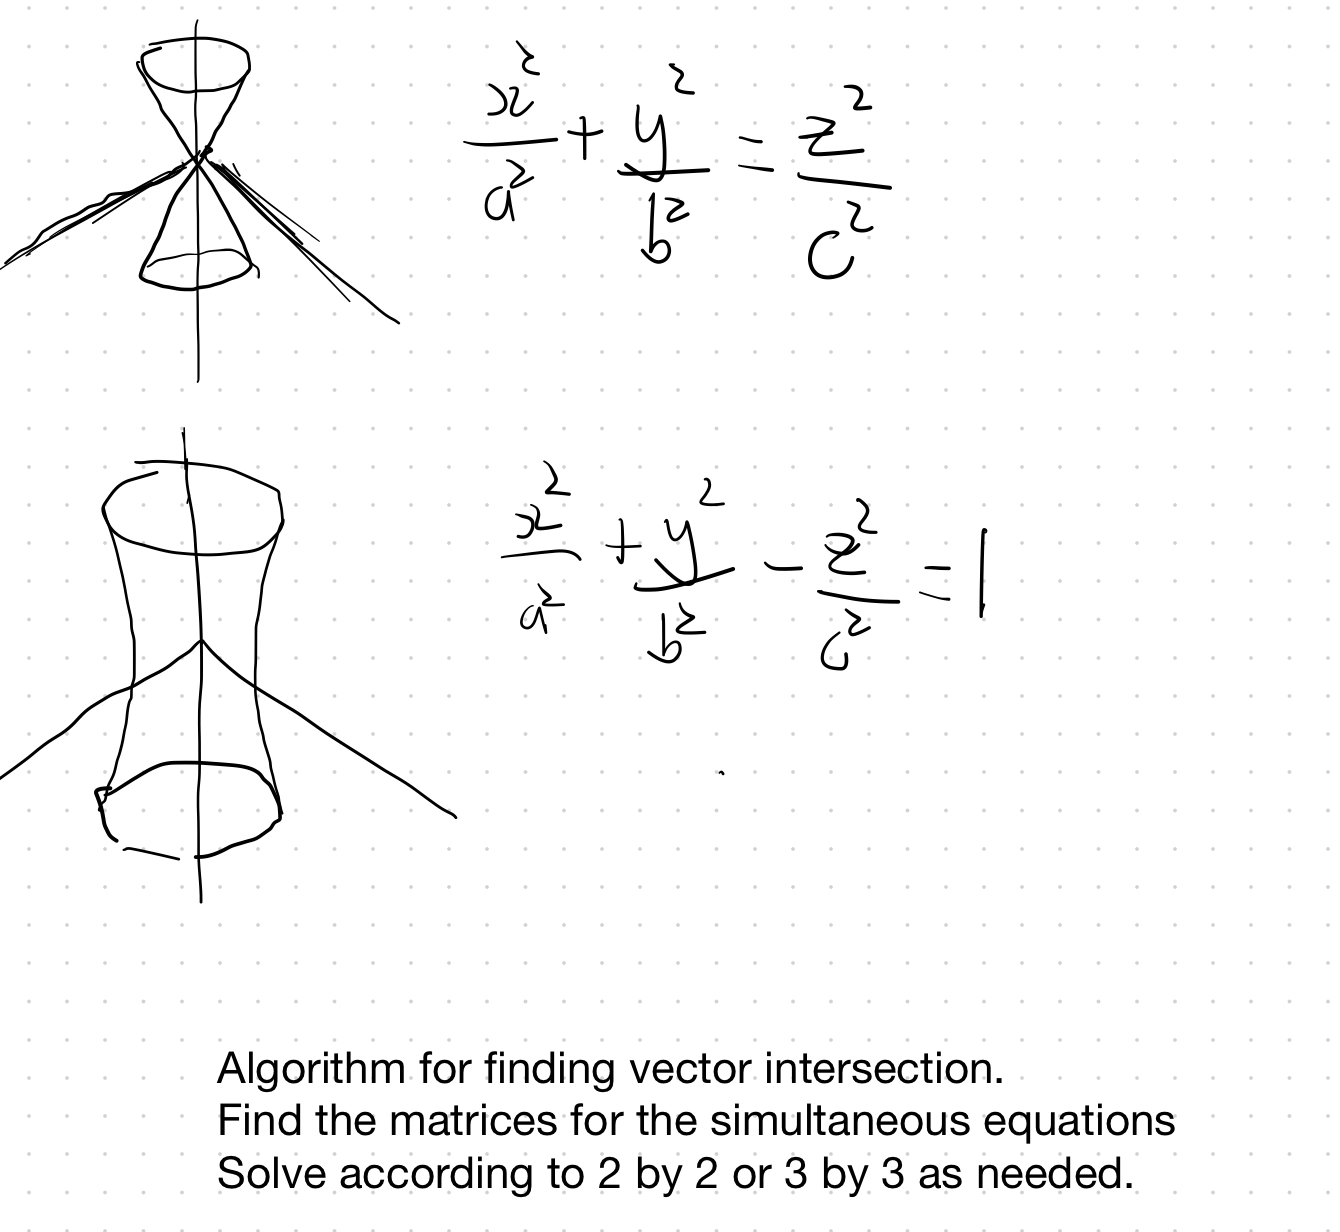 x²/a² + y²/b² = z²/c²
x²/a² + y²/b² - z²/c² = 1
Algorithm for finding vector intersection.
Find the matrices for the simultaneous equations
Solve according to 2 by 2 or 3 by 3 as needed.